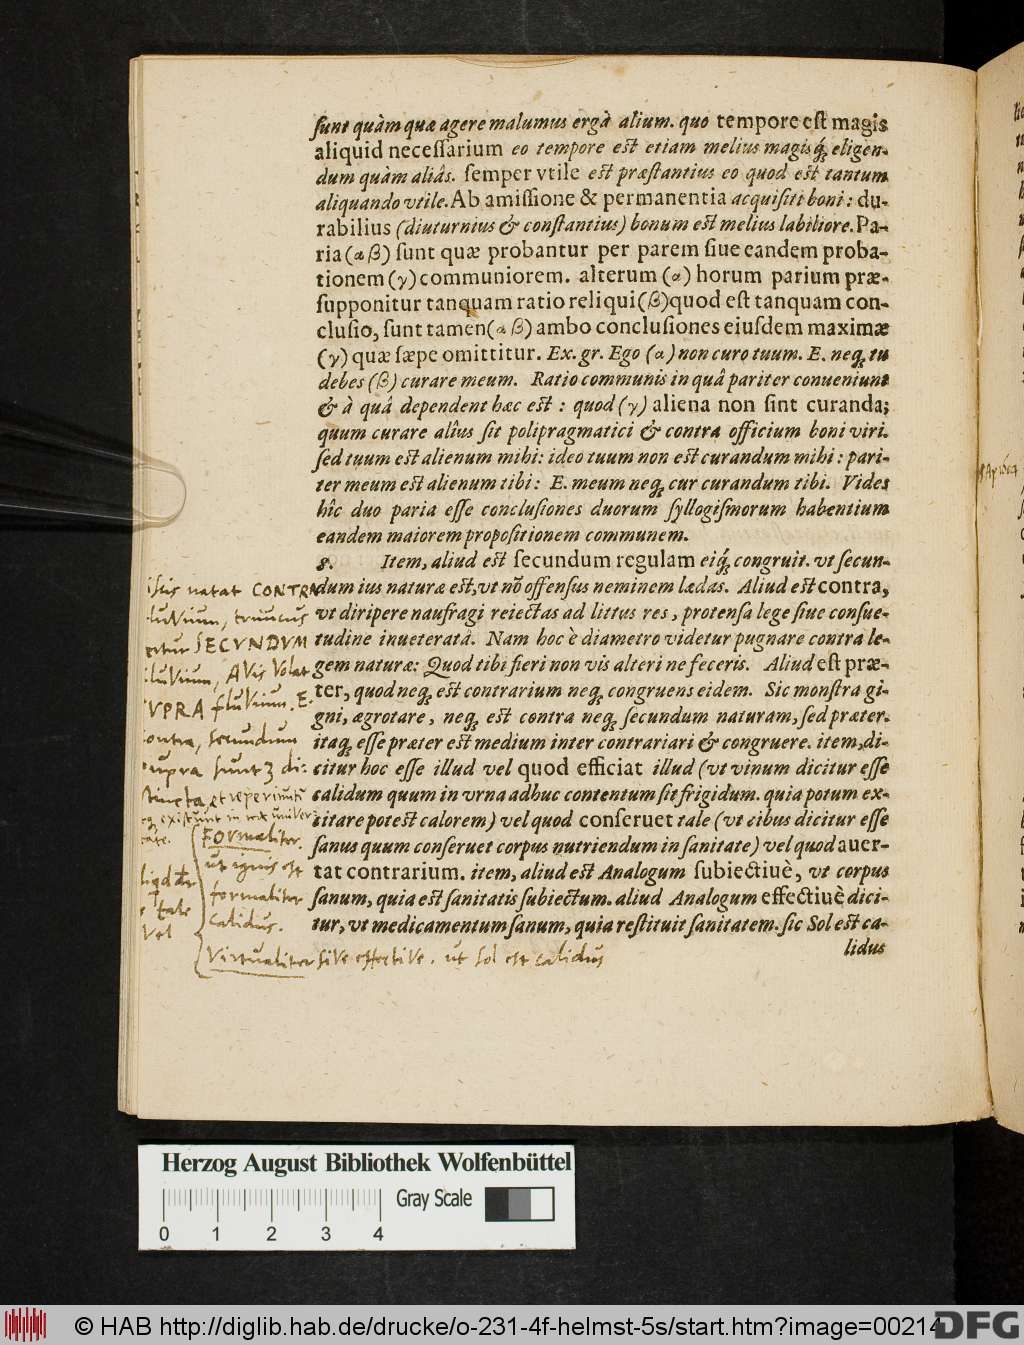 sunt quàm quæ agere malumus ergà alium. quo tempore est magis
aliquid necessarium eo tempore est etiam melius magisq́; eligen-
dum quàm aliâs. semper vtile est præstantius eo quod est tantum
aliquando vtile. Ab amissione & permanentia acquisiti boni: du-
rabilius (diuturnius & constantius) bonum est melius labiliore. Pa-
ria (α β) sunt quæ probantur per parem siue eandem proba-
tionem (γ) communiorem. alterum (α) horum parium præ-
supponitur tanquam ratio reliqui (β) quod est tanquam con-
clusio, sunt tamen (α β) ambo conclusiones eiusdem maximæ
(γ) quæ sæpe omittitur. Ex. gr. Ego (α) non curo tuum. E. neq; tu
debes (β) curare meum. Ratio communis in quâ pariter conueniunt
& à quâ dependent hæc est: quod (γ) aliena non sint curanda;
quum curare alîus sit polipragmatici & contra officium boni viri.
sed tuum est alienum mihi: ideo tuum non est curandum mihi: pari-
ter meum est alienum tibi: E. meum neq; cur curandum tibi. Vides
hîc duo paria esse conclusiones duorum syllogismorum habentium
eandem maiorem propositionem communem.
8. Item, aliud est secundum regulam eiq́; congruit. vt secun-
dum ius naturæ est, vt nõ offensus neminem lædas. Aliud est contra,
vt diripere naufragi reiectas ad littus res, protensa lege siue consue-
tudine inueteratâ. Nam hoc è diametro videtur pugnare contra le-
gem naturæ: Quod tibi fieri non vis alteri ne feceris. Aliud est præ-
ter, quod neq; est contrarium neq; congruens eidem. Sic monstra gi-
gni, ægrotare, neq; est contra neq; secundum naturam, sed præter.
itaq; esse præter est medium inter contrariari & congruere. item, di-
citur hoc esse illud vel quod efficiat illud (vt vinum dicitur esse
calidum quum in vrna adhuc contentum sit frigidum. quia potum ex-
citare potest calorem) vel quod conseruet tale (vt cibus dicitur esse
sanus quum conseruet corpus nutriendum in sanitate) vel quod auer-
tat contrarium. item, aliud est Analogum subiectiuè, vt corpus
sanum, quia est sanitatis subiectum. aliud Analogum effectiuè dici-
tur, vt medicamentum sanum, quia restituit sanitatem. sic Sol est ca-
lidus
natat CONTRA
fluvium, truncus
SECVNDVM
fluvium, AVis Volat
SVPRA fluVium. E.
contra, secundum
supra sunt di-
stincta, et
Formaliter.
ut ignis est
formaliter
calidus.
tale
Vel
Virtualiter siVe effective. ut sol est calidus
Herzog August Bibliothek Wolfenbüttel
Gray Scale
0 1 2 3 4
© HAB http://diglib.hab.de/drucke/o-231-4f-helmst-5s/start.htm?image=00214
DFG